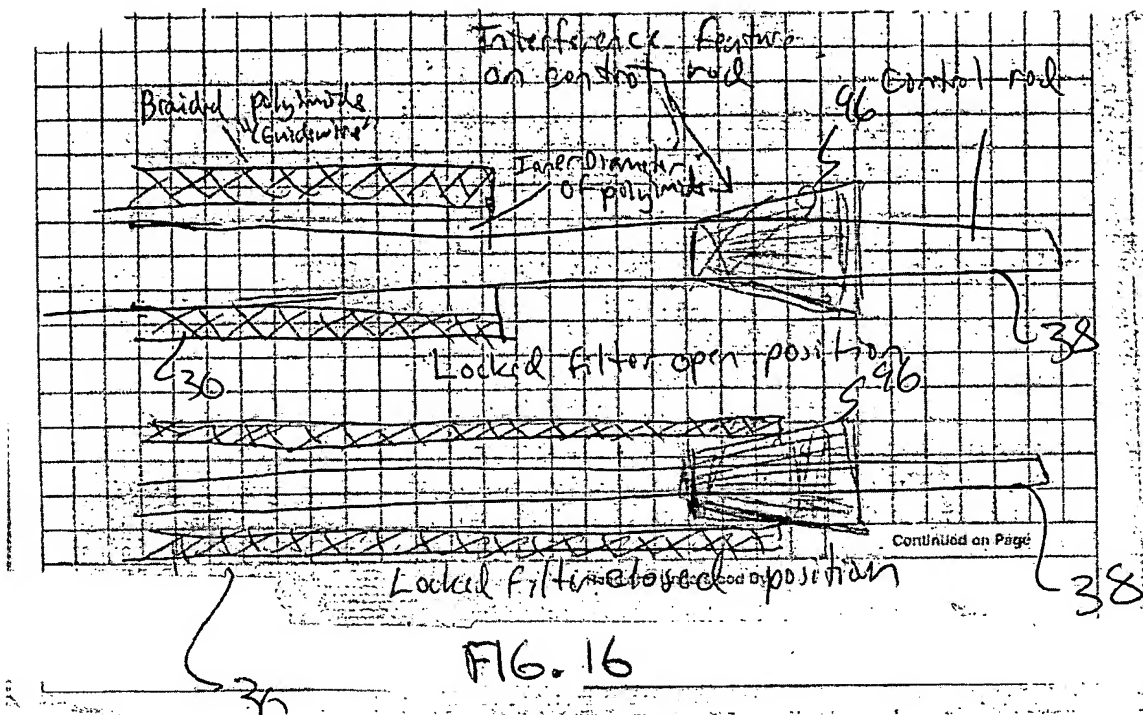 Interference feature
on control rod
Control rod
96
Braided polyimide
"Guidewire"
Inner Diameter
of polyimide
38
36
Locked filter open position
96
Continued on Page
Locked filter closed position
38
FIG. 16
36